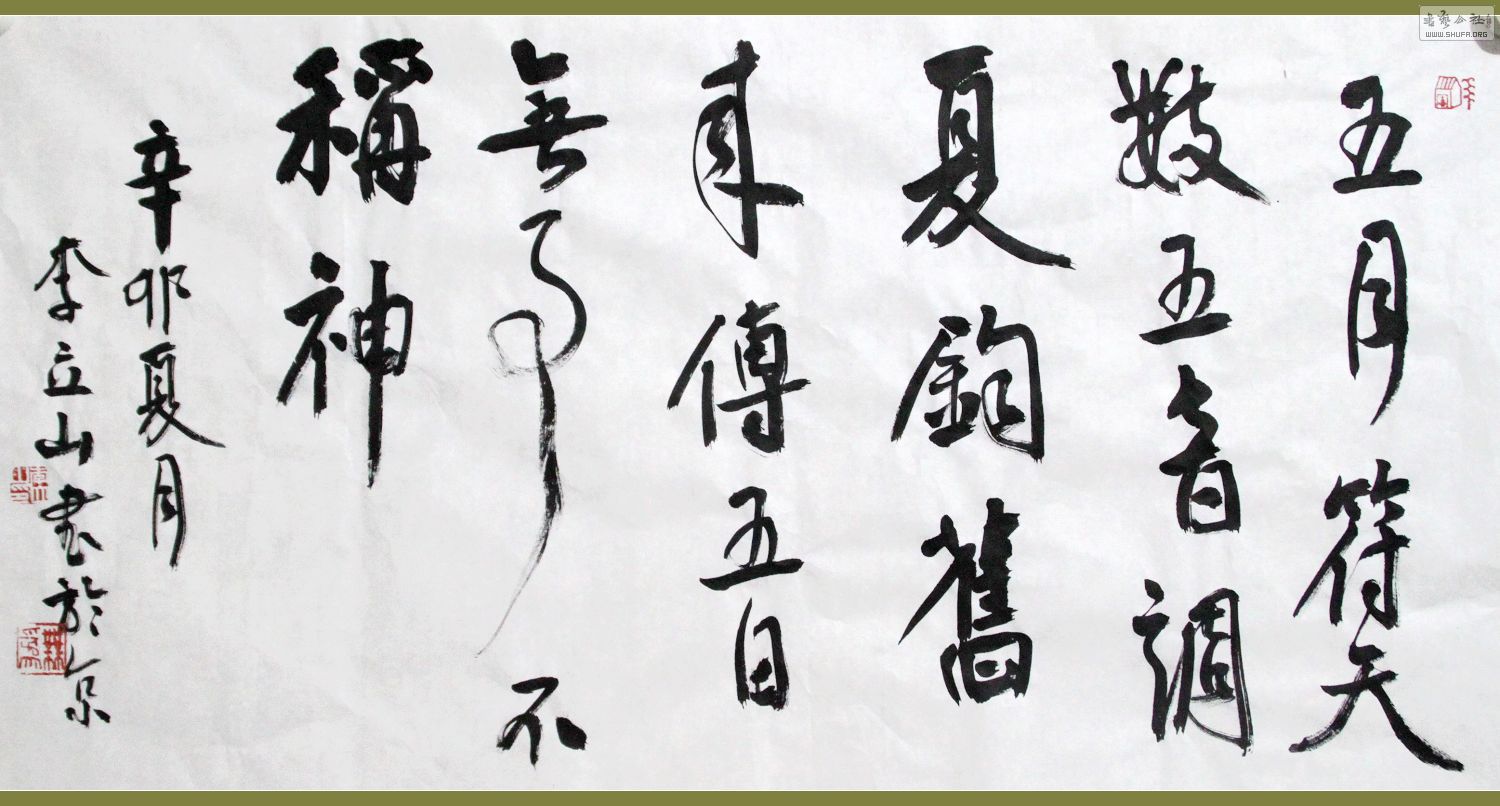 五月符天
數五音調
夏鈞舊
來傳五日
無事不
稱神
辛卯夏月
李立山書於京
書藝公社
WWW.SHUFA.ORG